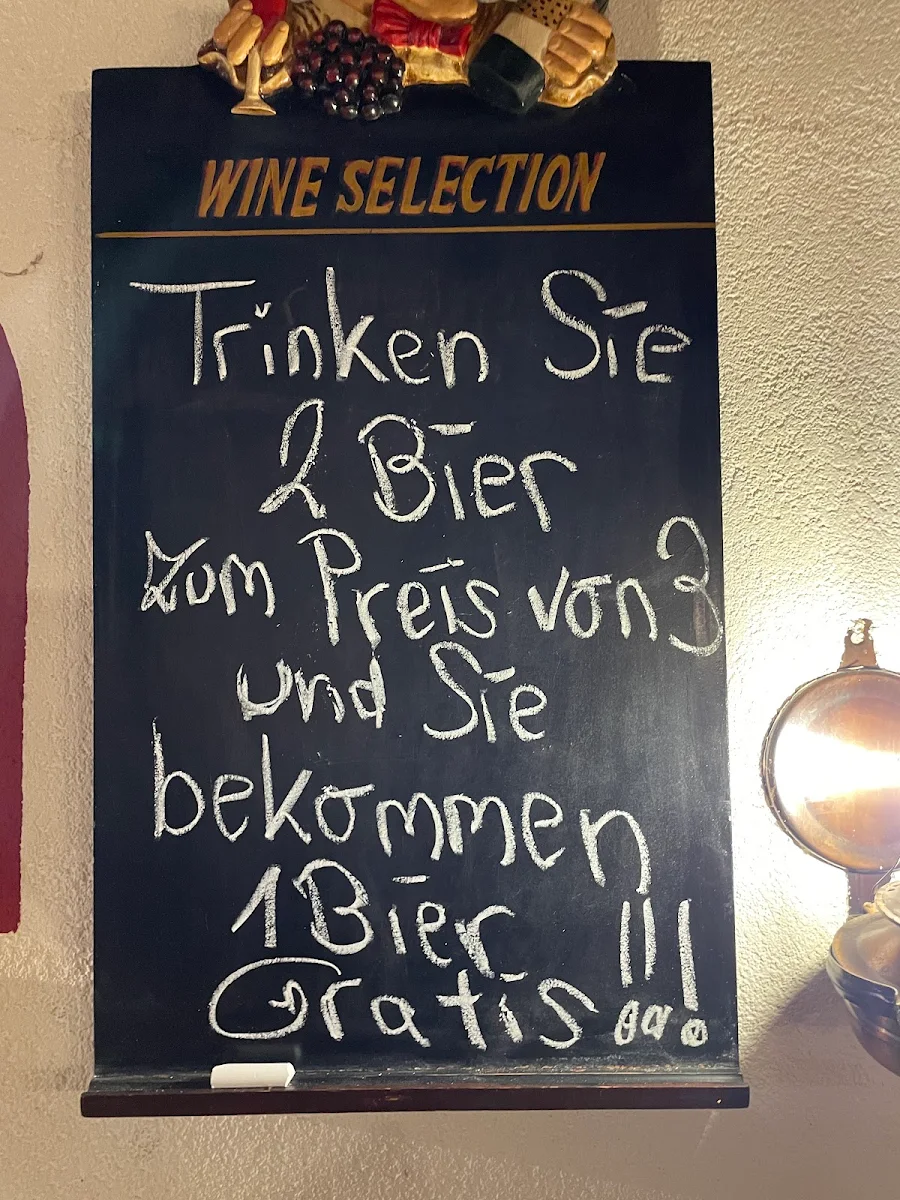 WINE SELECTION
Trinken Sie
2 Bier
zum Preis von 3
und Sie
bekommen
1 Bier
Gratis !!!